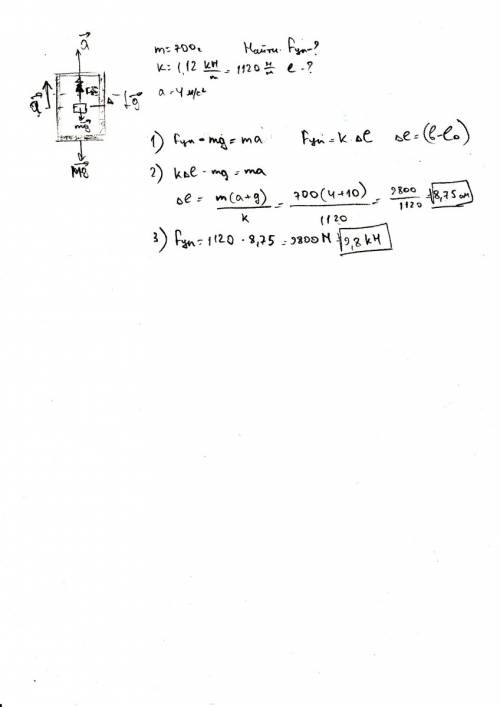 a
m = 700г Найти: Fуп-?
k = 1,12 кН/м = 1120 Н/м l-?
a = 4 м/с²
g
mg
1) Fуп - mg = ma Fуп = k · Δl Δl = (l - l₀)
2) kΔl - mg = ma
Δl = m(a+g)/k = 700(4+10)/1120 = 9800/1120 = 8,75 см
3) Fуп = 1120 · 8,75 = 9800 Н = 9,8 кН